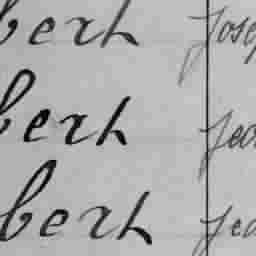 berh Jose
berh Jea
berh Jea